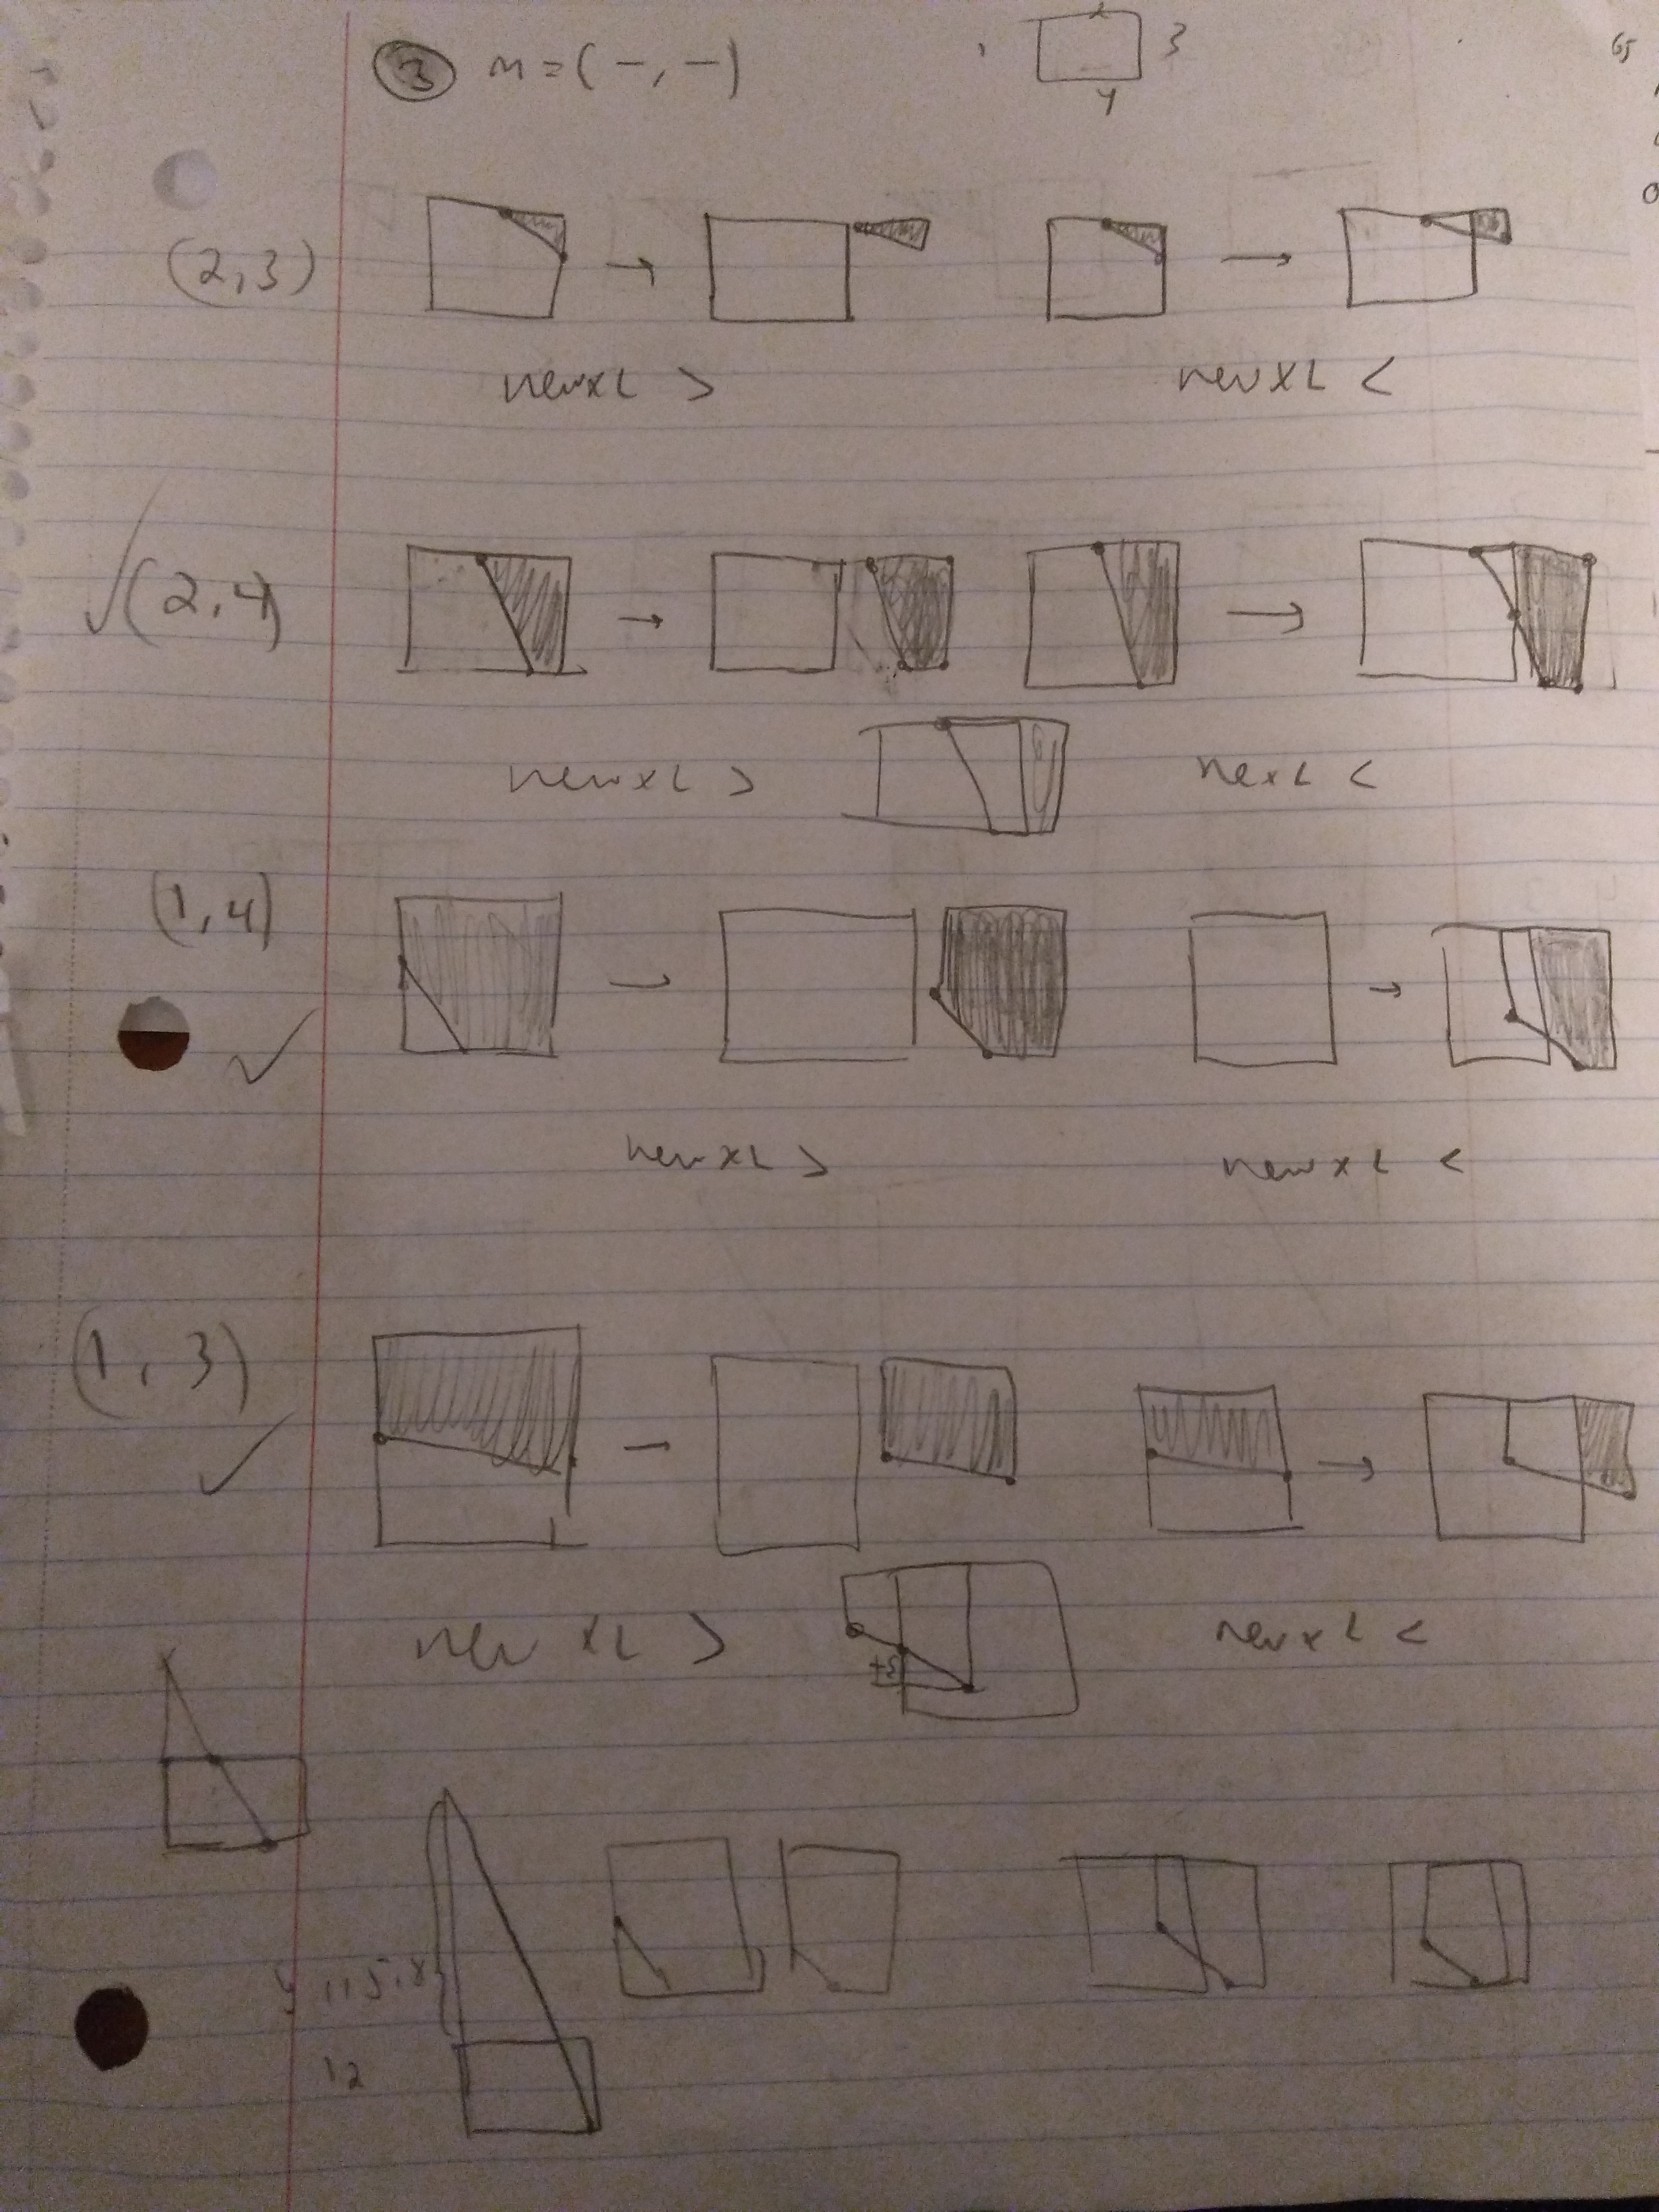 ③ m = (-, -)
1 2 3
4
65
(2,3)
→ →
newxL > newxL <
✓(2,4)
→ →
newxL > nexL <
(1,4)
→ →
✓
newxL > newxL <
(1,3)
→ →
✓
new xL > newxL <
12